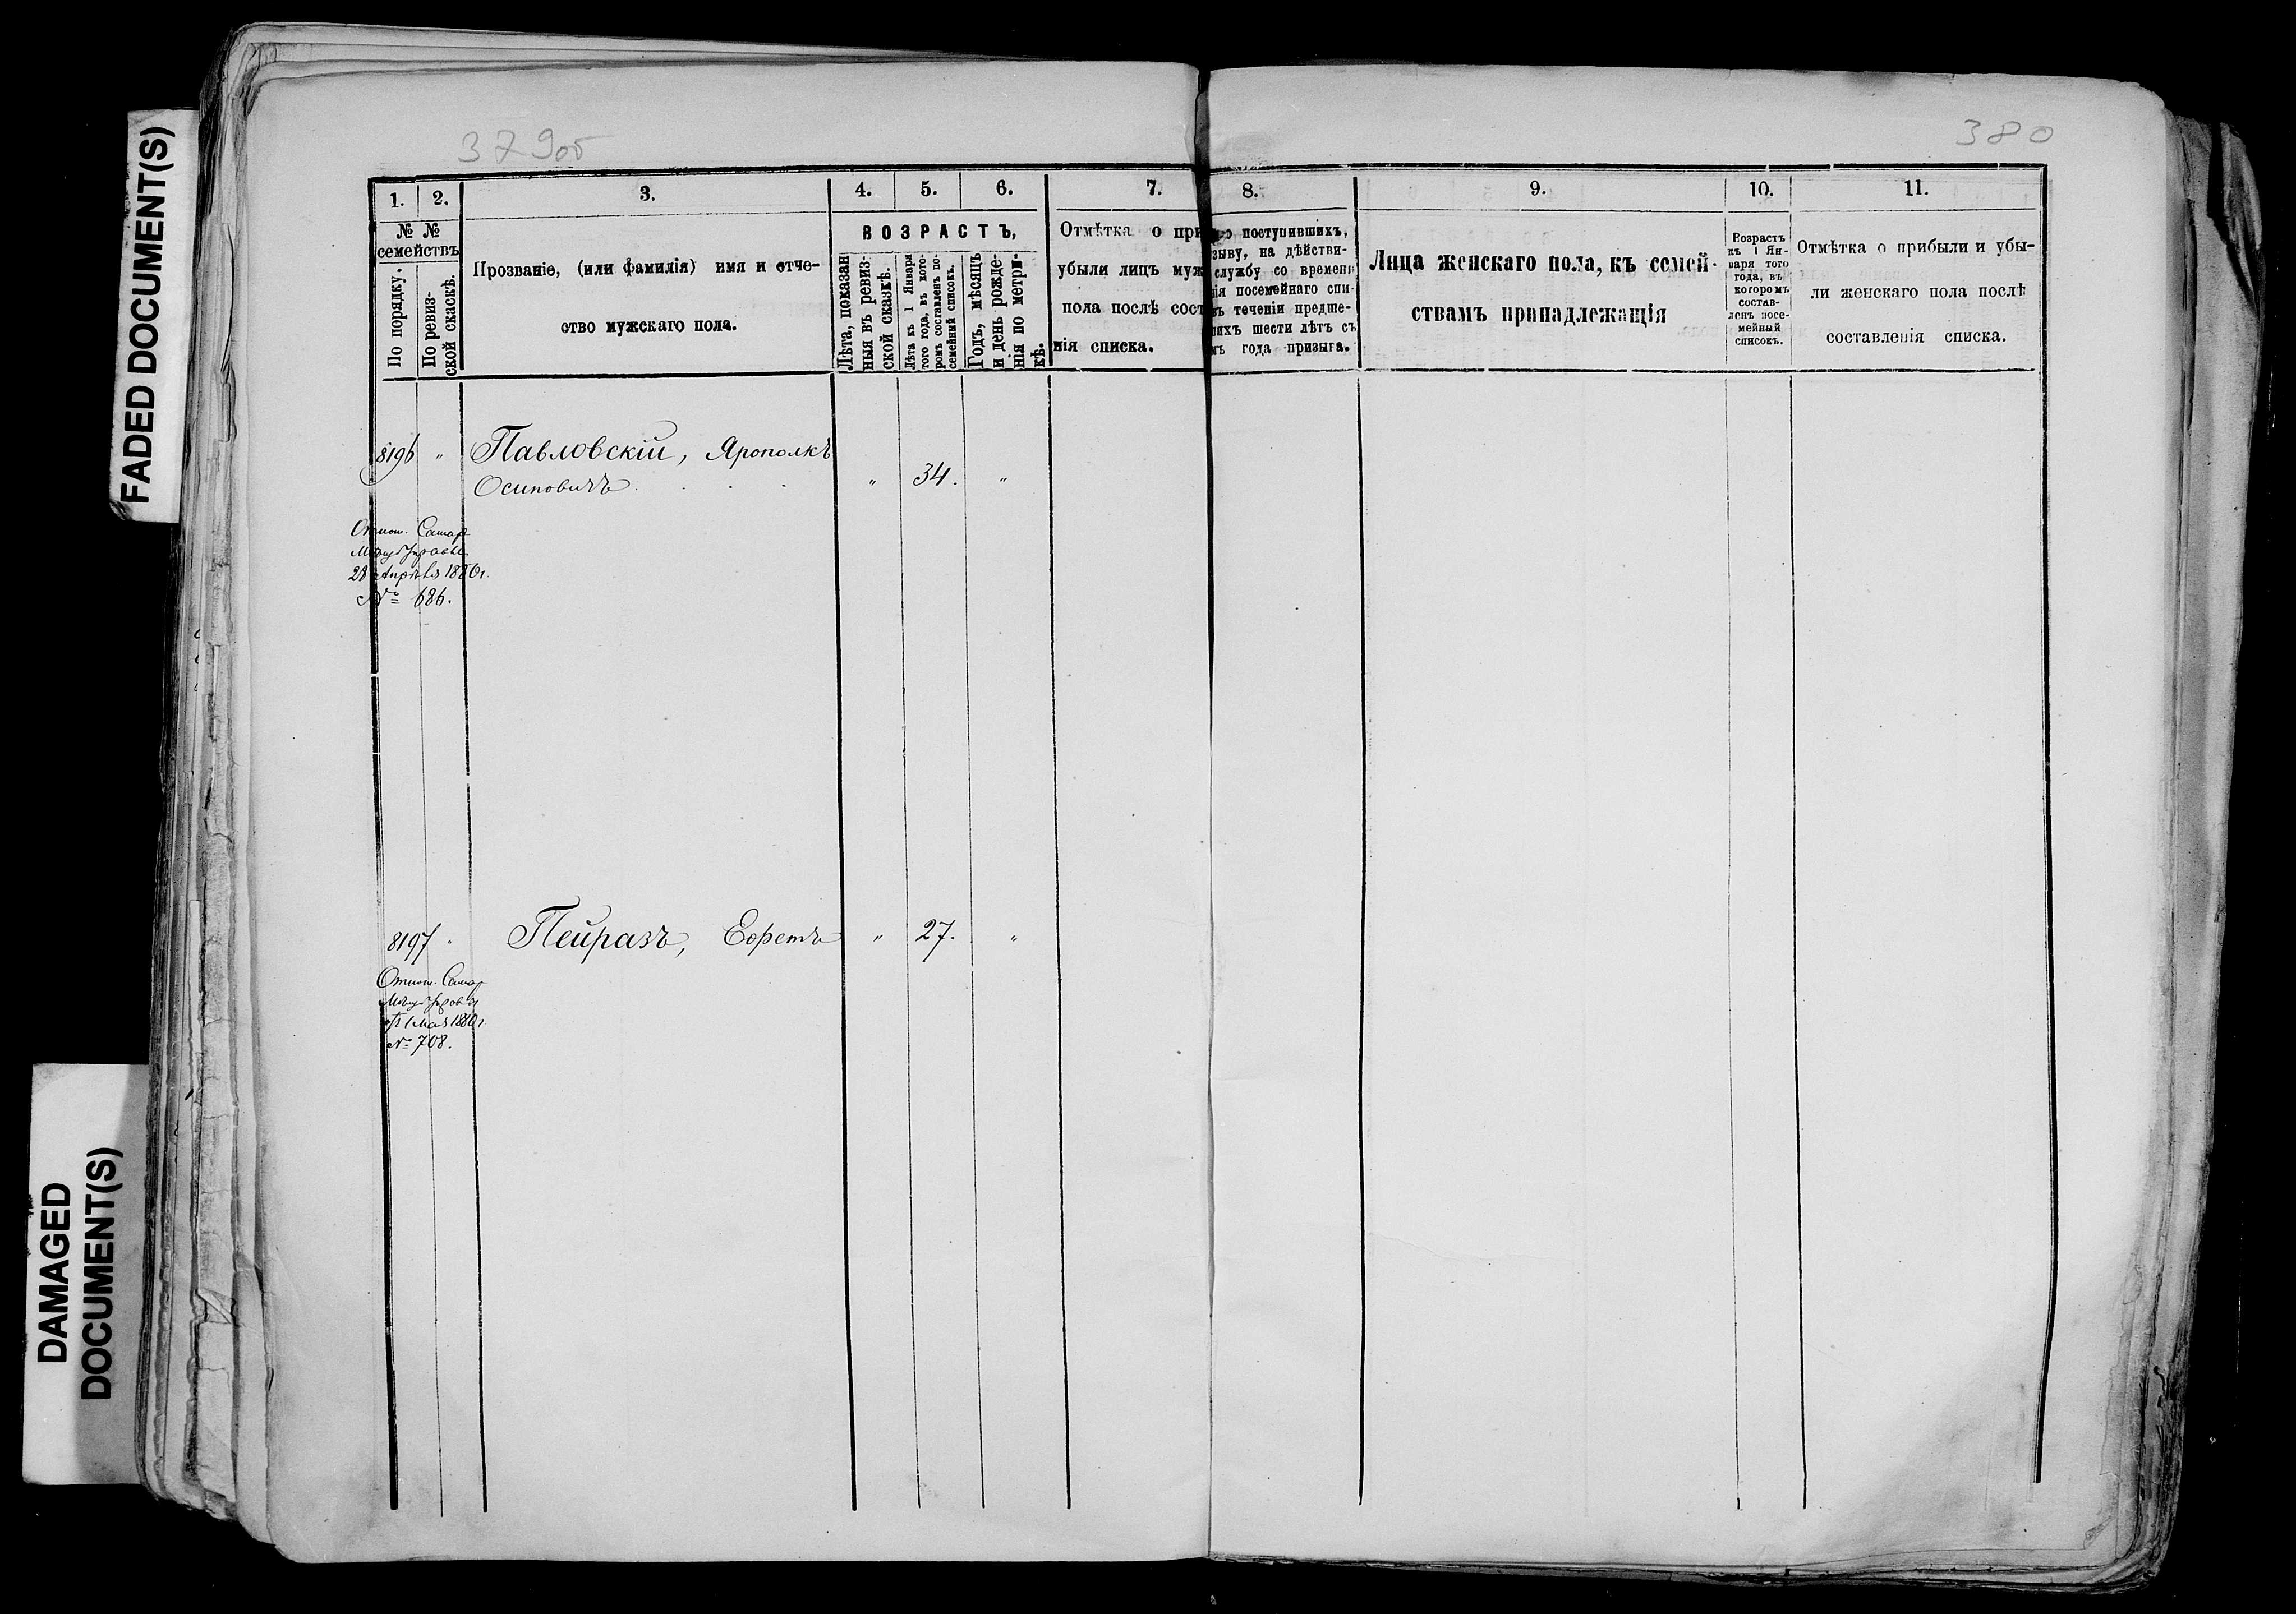 FADED DOCUMENT(S)
DAMAGED
DOCUMENT(S)
379об
380
1.
2.
3.
4.
5.
6.
7.
8.
9.
10.
11.
№ №
семействъ
По порядку.
По ревиз-
ской скаскѣ.
Прозваніе, (или фамилія) имя и отче-
ство мужскаго пола.
ВОЗРАСТЪ,
Лѣта, показан
ныя въ ревиз-
ской сказкѣ.
Лѣта къ 1 Января
того года, въ кото-
ромъ составленъ по-
семейный списокъ.
Годъ, мѣсяцъ
и день рожде-
нія по метри-
кѣ.
Отмѣтка о при
убыли лицъ муж
пола послѣ сост
нія списка.
о поступившихъ,
зыву, на дѣйстви-
службу со времени
нія посемейнаго спи-
въ теченіи предше-
ихъ шести лѣтъ съ
года призыва.
Лица женскаго пола, къ семей-
ствамъ принадлежащія
Возрастъ
къ 1 Ян-
варя того
года, въ
которомъ
состав-
ленъ посе-
мейный
списокъ.
Отмѣтка о прибыли и убы-
ли женскаго пола послѣ
составленія списка.
8196 " Павловскій, Ярополкъ
Осиповичъ . . . " 34. "
Относ. Самар
Мѣщ Управы
28 Апрѣля 1880г.
№ 686.
8197 " Пейразъ, " 27. "
Относ. Самар
Мѣщ Управы
Мая 1880г.
№ 708.